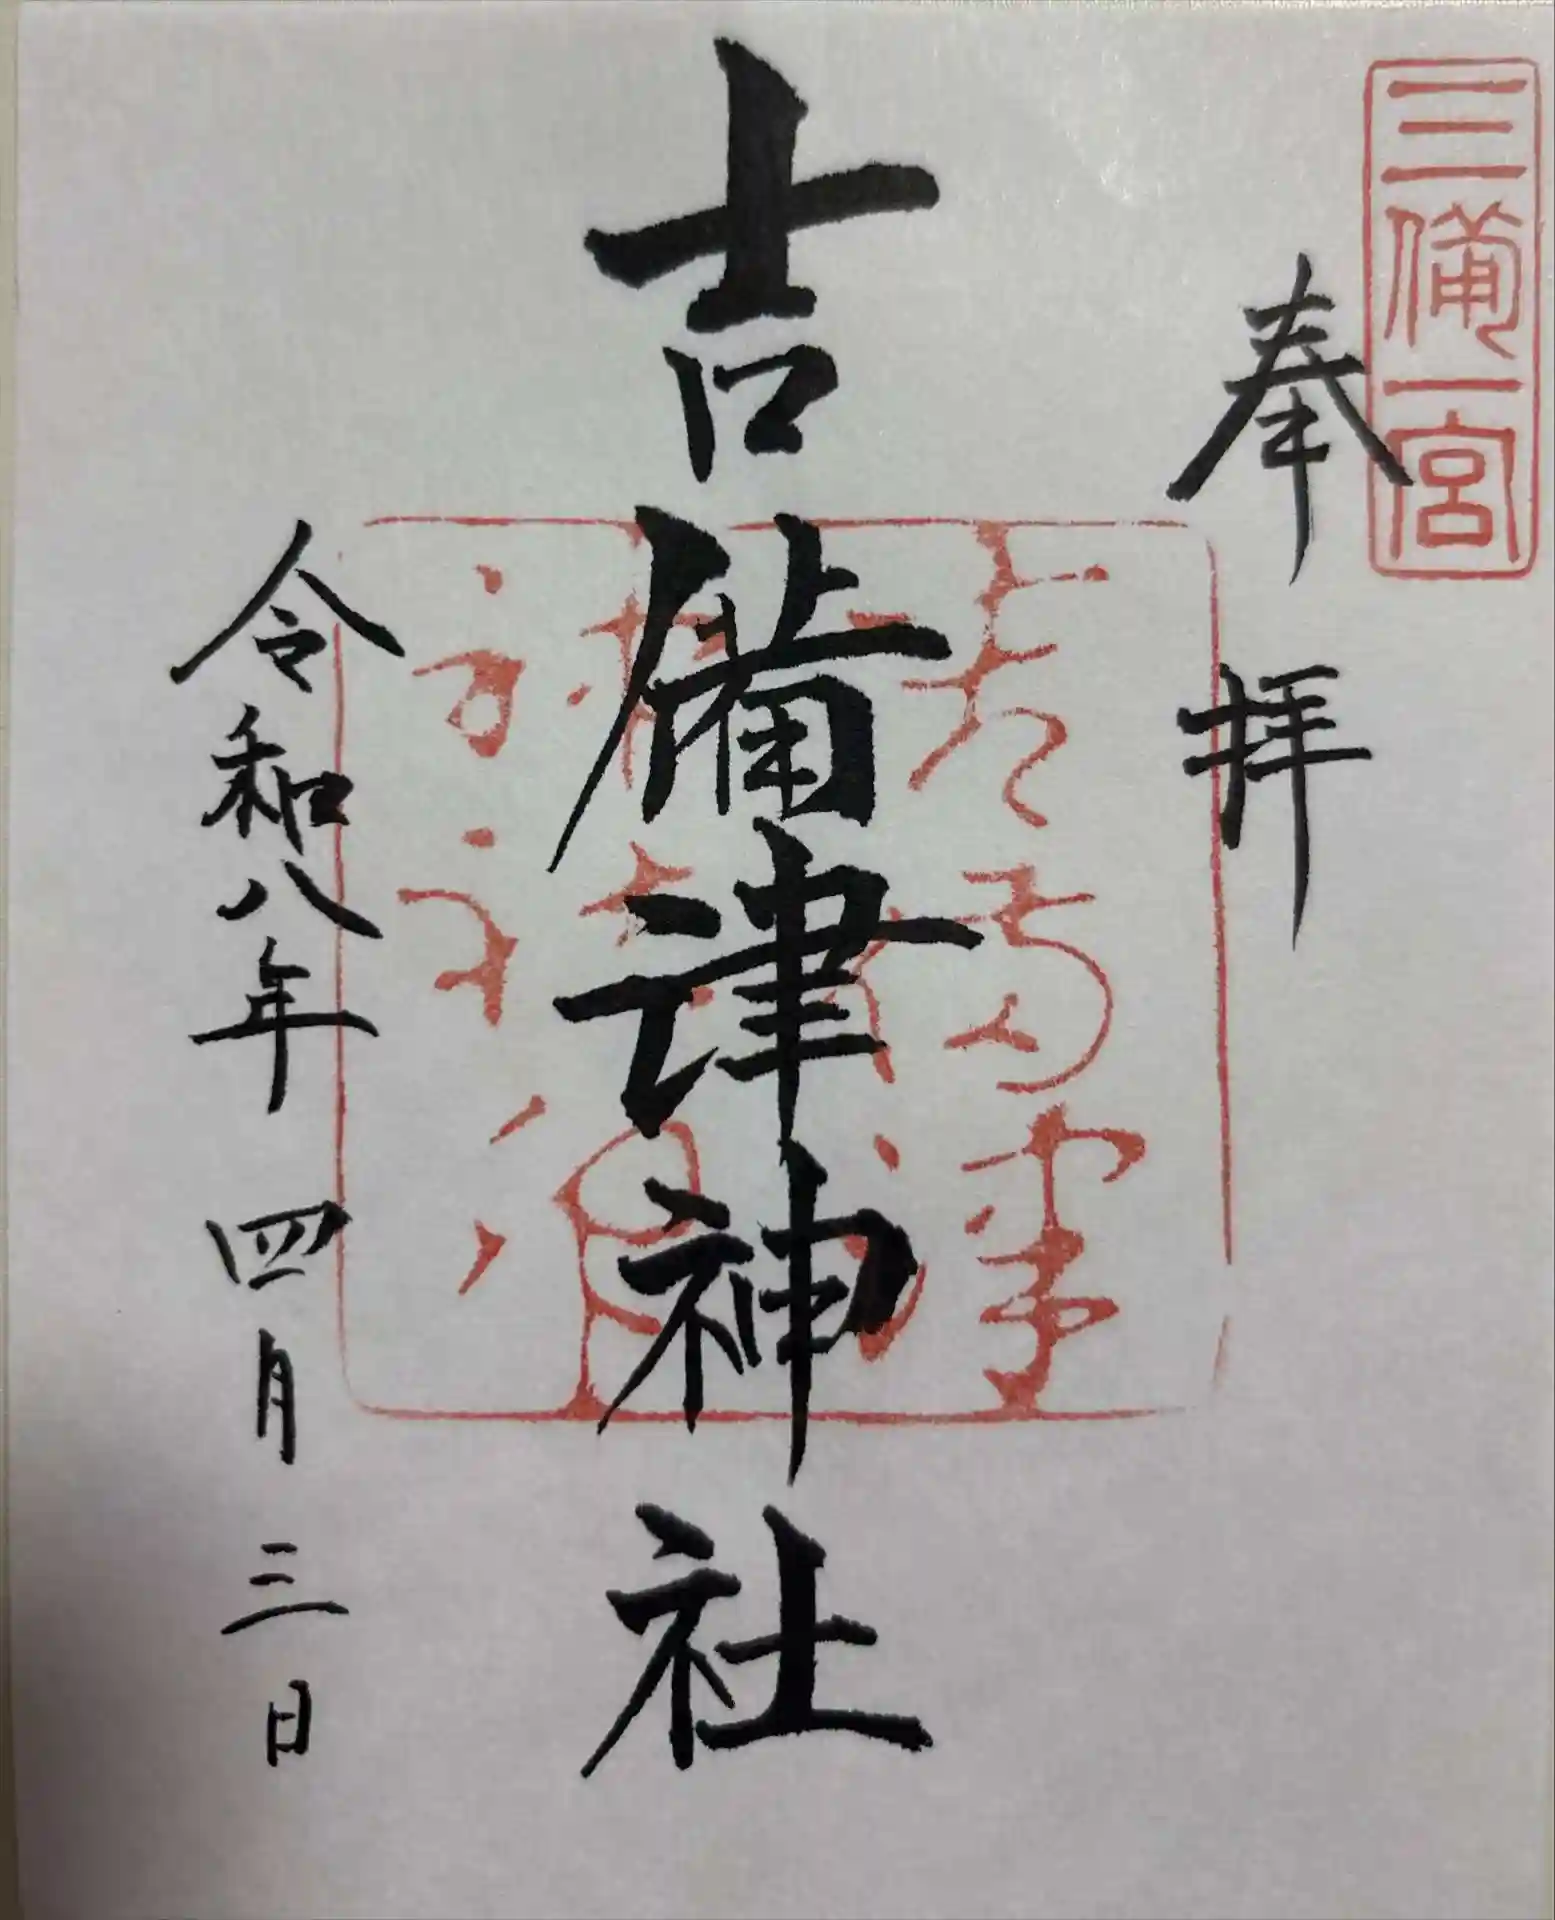 三備一宮
奉拝
吉備津神社
令和八年 四月 三日